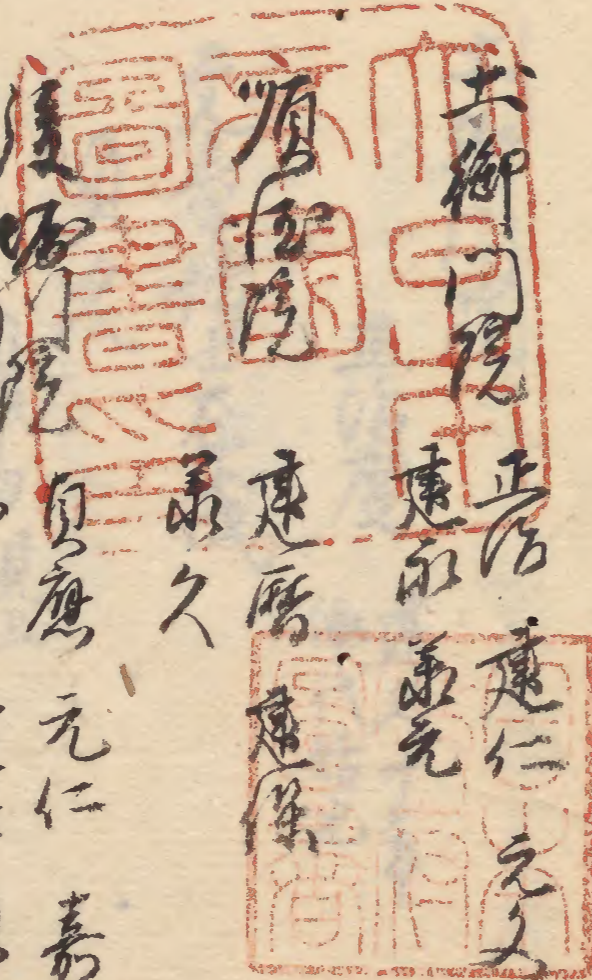 土御門院 正治 建仁 元久
建永 承元
順徳院 建暦 建保
承久
後堀川院 貞應 元仁 嘉
圖書之印